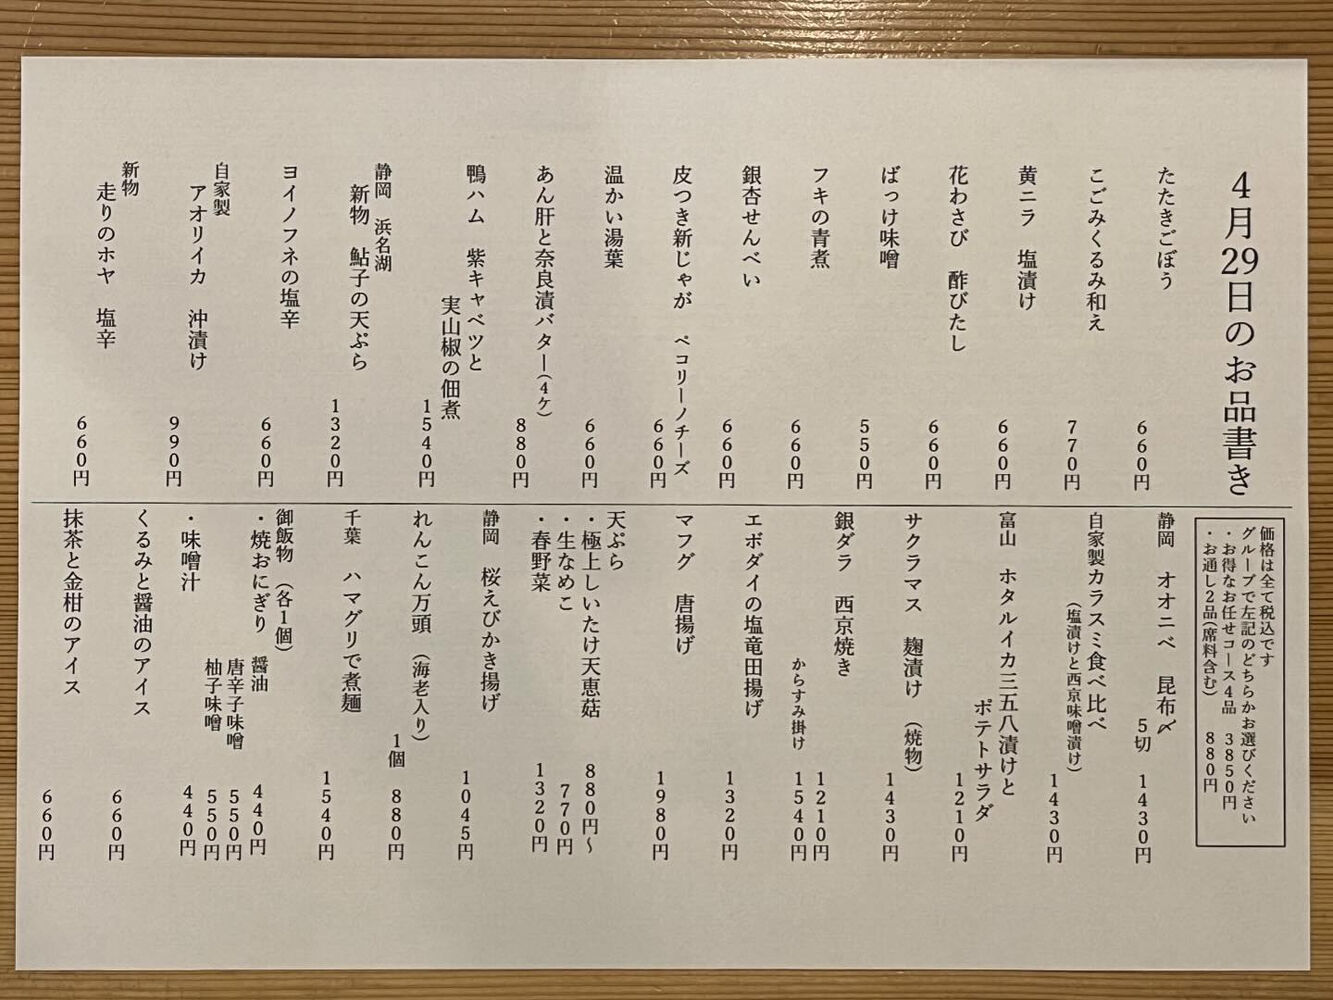 4月29日のお品書き
たたきごぼう
660円
こごみくるみ和え
770円
黄ニラ 塩漬け
660円
花わさび 酢びたし
660円
ばっけ味噌
550円
フキの青煮
660円
銀杏せんべい
660円
皮つき新じゃが ペコリーノチーズ
660円
温かい湯葉
660円
あん肝と奈良漬バター(4ケ)
880円
鴨ハム 紫キャベツと
実山椒の佃煮
1540円
静岡 浜名湖
新物 鮎子の天ぷら
1320円
ヨイノフネの塩辛
660円
自家製
アオリイカ 沖漬け
990円
新物
走りのホヤ 塩辛
660円
価格は全て税込です
グループで左記のどちらかお選びください
・お得なお任せコース4品 3850円
・お通し2品(席料含む) 880円
静岡 オオニベ 昆布〆
5切 1430円
自家製カラスミ食べ比べ
(塩漬けと西京味噌漬け)
1430円
富山 ホタルイカ三五八漬けと
ポテトサラダ
1210円
サクラマス 麹漬け (焼物)
1430円
銀ダラ 西京焼き
1210円
からすみ掛け
1540円
エボダイの塩竜田揚げ
1320円
マフグ 唐揚げ
1980円
天ぷら
・極上しいたけ天恵菇 880円～
・生なめこ 770円
・春野菜 1320円
静岡 桜えびかき揚げ
1045円
れんこん万頭 (海老入り)
1個 880円
千葉 ハマグリで煮麺
1540円
御飯物 (各1個)
・焼おにぎり 醤油 440円
唐辛子味噌 550円
柚子味噌 550円
・味噌汁 440円
くるみと醤油のアイス
660円
抹茶と金柑のアイス
660円